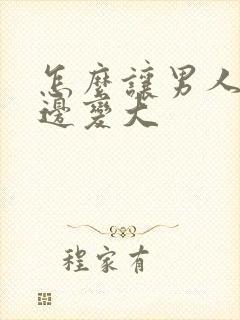 怎麼讓男人
邊變大
程家有